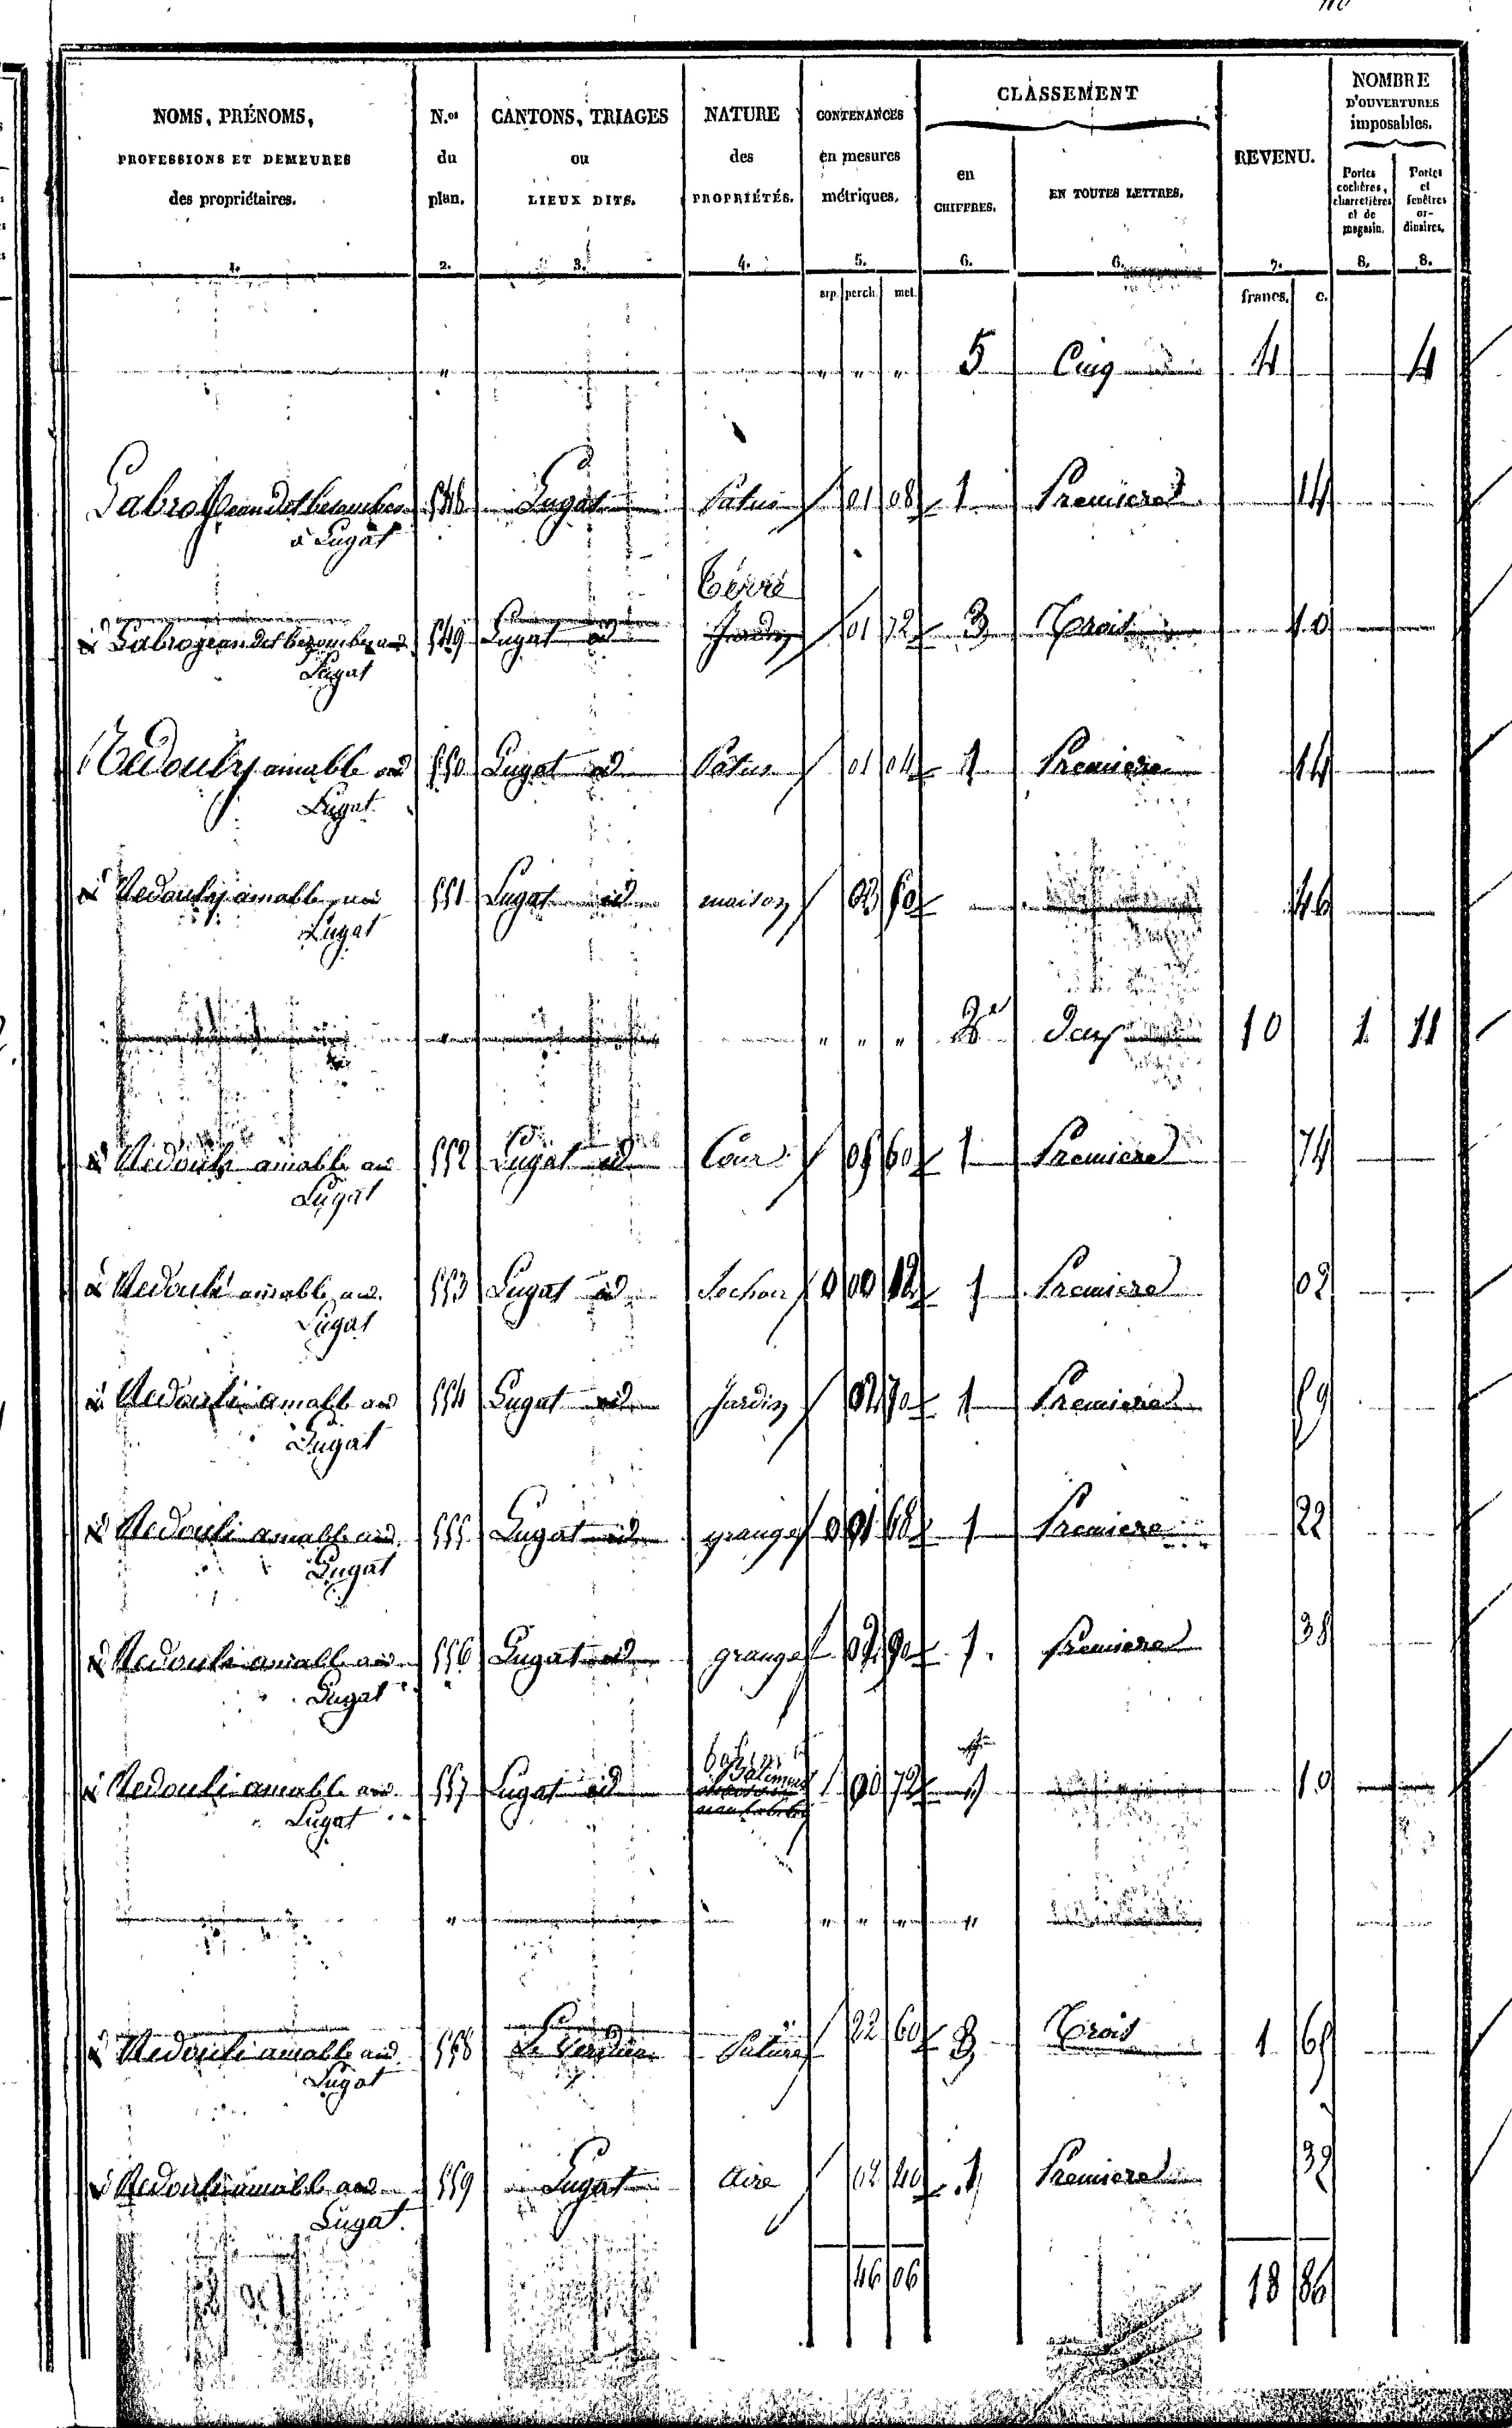 NOMS, PRÉNOMS,
PROFESSIONS ET DEMEURES
des propriétaires.
1.
N.os
du
plan.
2.
CANTONS, TRIAGES
ou
LIEUX DITS.
3.
NATURE
des
PROPRIÉTÉS.
4.
CONTENANCES
en mesures
métriques.
5.
CLASSEMENT
en
CHIFFRES.
6.
EN TOUTES LETTRES.
6.
REVENU.
7.
NOMBRE
D'OUVERTURES
imposables.
Portes
cochères,
charretières
et de
magasin.
8.
Portes
et
fenêtres
or-
dinaires.
8.
arp. perch. met. francs. c.
" " " " 5 Cinq 4 4
Labro jean det 548 Lugat Patus 01 08 1 Premiere 14
à Lugat
Terre
Labro jean det 549 Lugat id Jardin 01 72 3 Trois 10
Lugat
Redouly amable au 550 Lugat id Patus 01 04 1 Premiere 14
Lugat
Redouly amable au 551 Lugat id maison 60 46
Lugat
" " " " 2e 10 1 11
Redouli amable au 552 Lugat id Cour 05 60 1 Premiere 74
Lugat
Redouli amable au 553 Lugat id Sechoir 0 00 12 1 Premiere 02
Lugat
Redouli amable au 554 Lugat id Jardin 02 70 1 Premiere 59
Lugat
Redouli amable au 555 Lugat id grange 0 01 68 1 Premiere 22
Lugat
Redouli amable au 556 Lugat id grange 02 90 1 Premiere 38
Lugat
Redouli amable au 557 Lugat id Batiment 00 72 10
Lugat
" " " " "
Redouli amable au 558 Pature 22 60 3 Trois 1 65
Lugat
Redouli amable au 559 Lugat Aire 02 40 1 Premiere 32
Lugat.
46 06 18 86